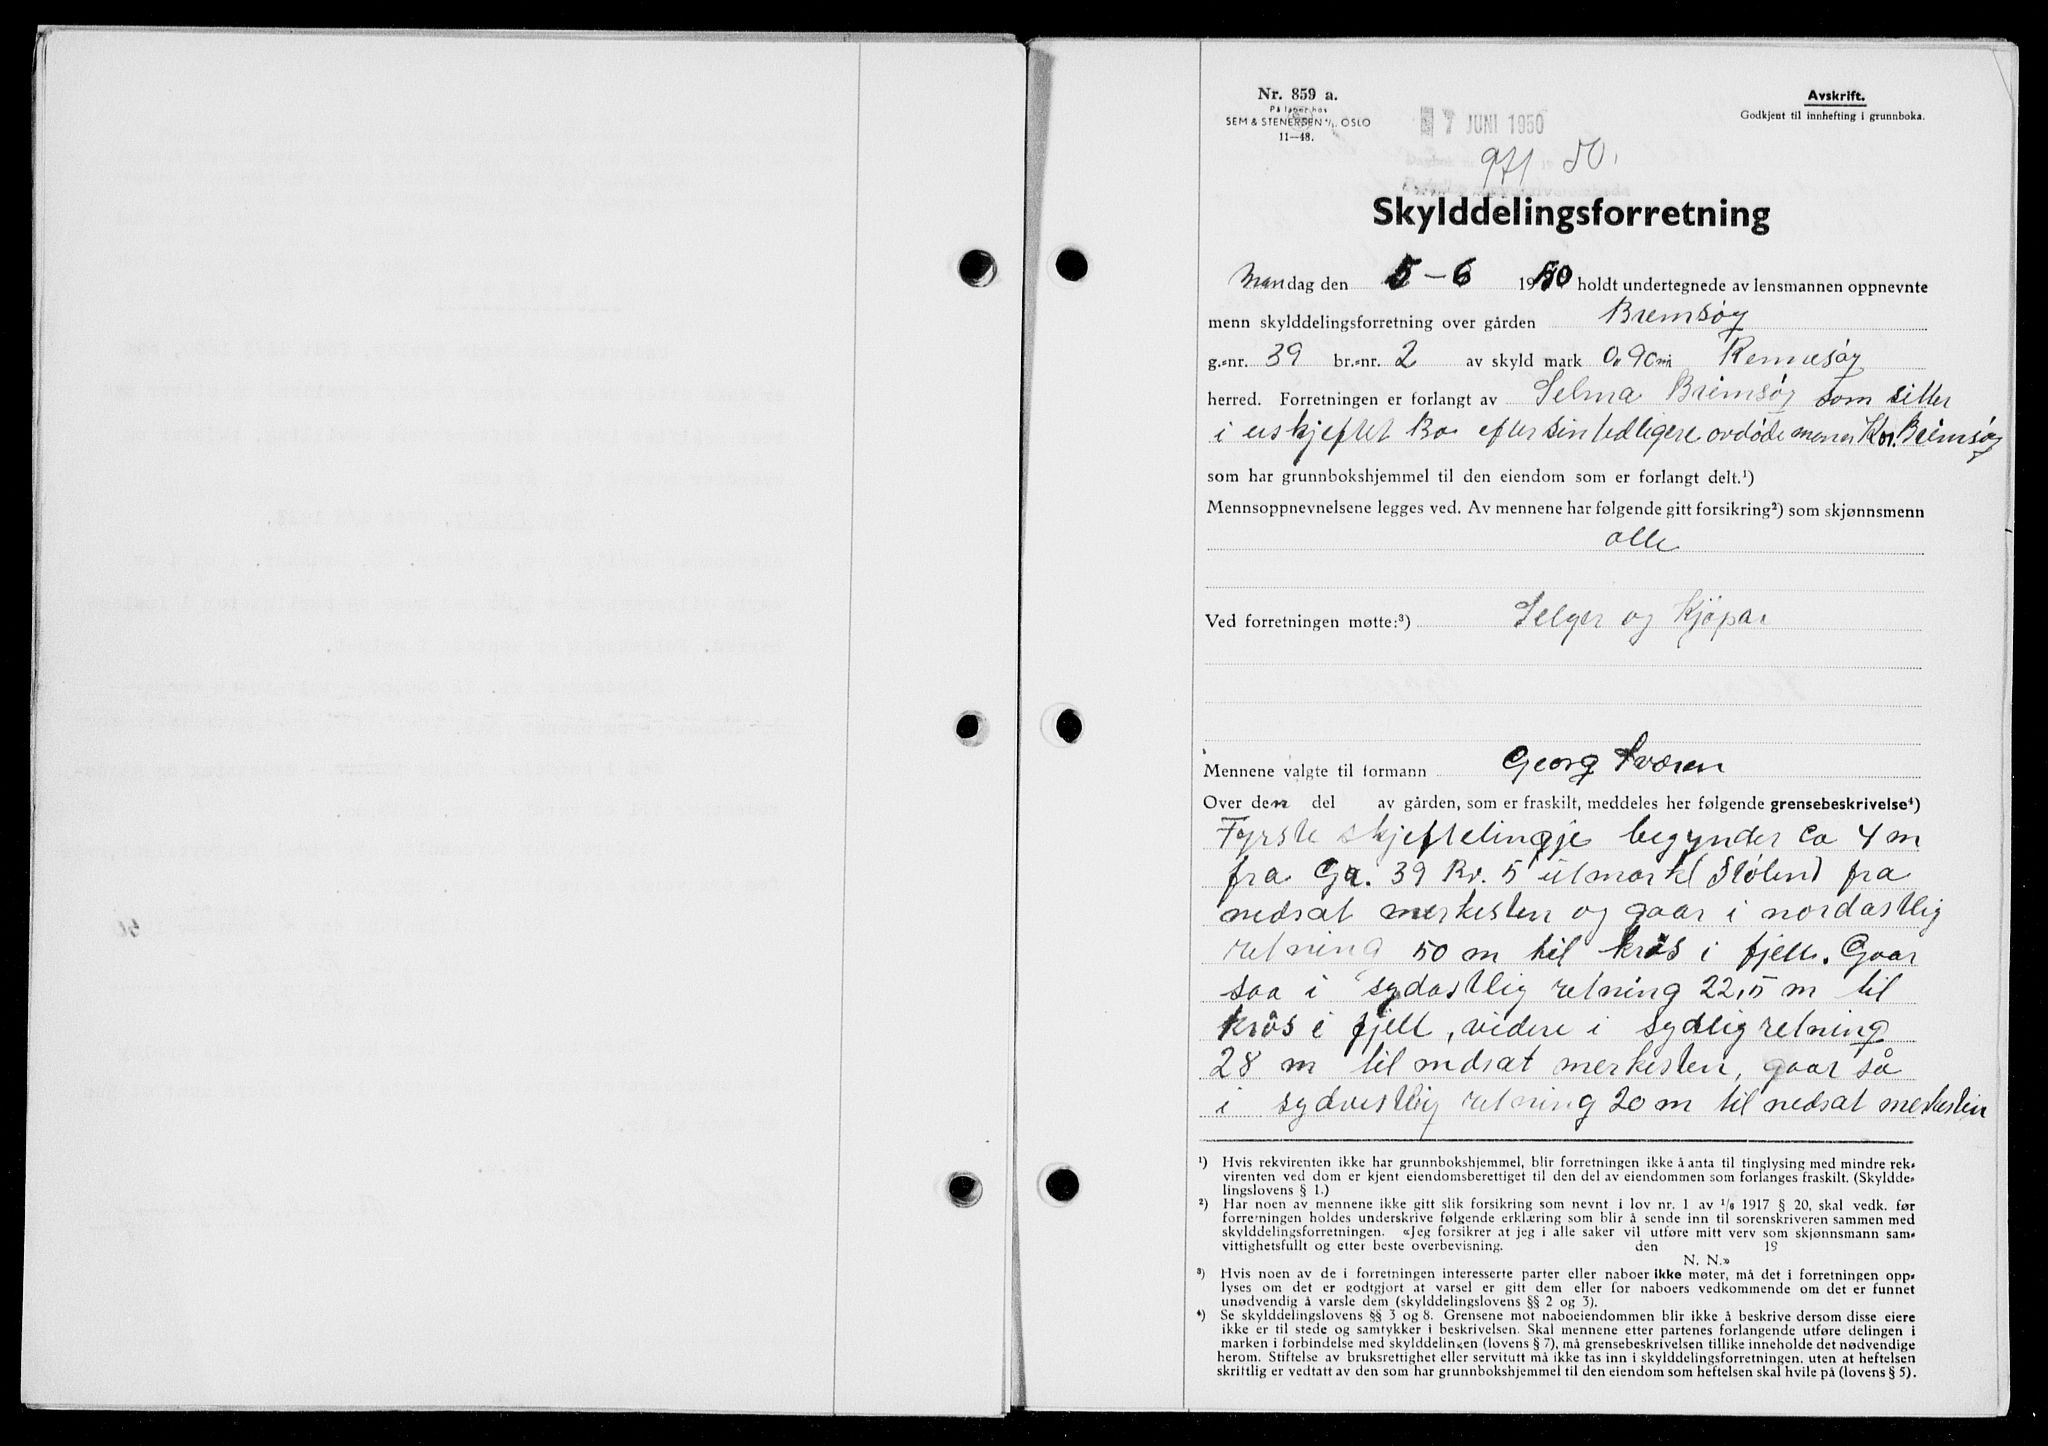 Nr. 859 a.
På lager hos
SEM & STENERSEN A/S OSLO
11—48.
Avskrift.
Godkjent til innhefting i grunnboka.
7 JUNI 1950
971 50.
Skylddelingsforretning
Mandag den 5-6 1950 holdt undertegnede av lensmannen oppnevnte
menn skylddelingsforretning over gården Bremsøy
g.-nr. 39 br.-nr. 2 av skyld mark 0,90 m Rennesøy
herred. Forretningen er forlangt av Selma Brimsøy som sitter
i uskjeftet Bo efter sin tedligere avdøde mann Kr. Brimsøy
som har grunnbokshjemmel til den eiendom som er forlangt delt.¹)
Mennsoppnevnelsene legges ved. Av mennene har følgende gitt forsikring²) som skjønnsmenn
alle
Ved forretningen møtte:³) Selger og Kjøpar
Mennene valgte til formann Georg Sværen
Over den del av gården, som er fraskilt, meddeles her følgende grensebeskrivelse⁴)
Fyrste skjeftelingje begynder ca 4 m
fra Gr. 39 Br. 5 utmark( Stølen) fra
nedsat merkesten og gaar i nordastlig
retning 50 m til krås i fjell. Gaar
saa i sydastlig retning 22,5 m til
krås i fjell, videre i sydlig retning
28 m til nedsat merkesten, gaar så
i sydvestlig retning 20 m til nedsat merkestein
¹) Hvis rekvirenten ikke har grunnbokshjemmel, blir forretningen ikke å anta til tinglysing med mindre rek-
virenten ved dom er kjent eiendomsberettiget til den del av eiendommen som forlanges fraskilt. (Skyldde-
lingslovens § 1.)
²) Har noen av mennene ikke gitt slik forsikring som nevnt i lov nr. 1 av 1/6 1917 § 20, skal vedk. før
forretningen holdes underskrive følgende erklæring som blir å sende inn til sorenskriveren sammen med
skylddelingsforretningen. «Jeg forsikrer at jeg i alle saker vil utføre mitt verv som skjønnsmann sam-
vittighetsfullt og etter beste overbevisning. den 19
N. N.»
³) Hvis noen av de i forretningen interesserte parter eller naboer ikke møter, må det i forretningen opp-
lyses om det er godtgjort at varsel er gitt dem eller for naboers vedkommende om det er funnet
unødvendig å varsle dem (skylddelingslovens §§ 2 og 3).
⁴) Se skylddelingslovens §§ 3 og 8. Grensene mot naboeiendommen blir ikke å beskrive dersom disse eiere
ikke er til stede og samtykker i beskrivelsen. Skal mennene etter partenes forlangende utføre delingen i
marken i forbindelse med skylddelingen (lovens § 7), må grensebeskrivelsen tillike inneholde det nødvendige
herom. Stiftelse av bruksrettighet eller servitutt må ikke tas inn i skylddelingsforretningen, uten at heftelsen
skriftlig er vedtatt av den som har grunnbokshjemmel til den eiendom som heftelsen skal hvile på (lovens § 5).